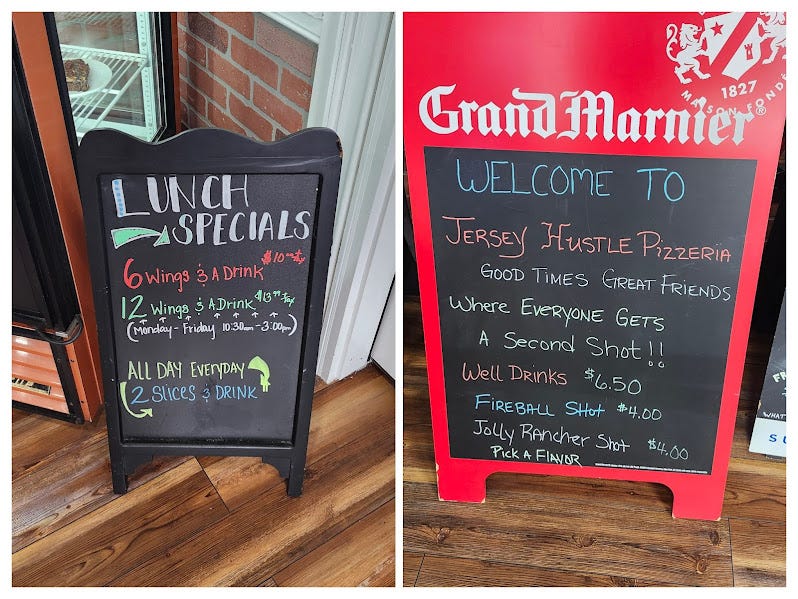 LUNCH
SPECIALS
6 Wings & A Drink
12 Wings & A Drink $13.99 + tax
(Monday - Friday 10:30am - 3:00pm)
ALL DAY EVERYDAY
2 Slices & DRINK
1827
MAISON FONDÉ
Grand Marnier®
WELCOME TO
JERSEY HUSTLE PIZZERIA
GOOD TIMES GREAT FRIENDS
Where EVERYONE GETS
A Second Shot!!
Well Drinks $6.50
FIREBALL SHOT $4.00
Jolly Rancher Shot $4.00
PICK A FLAVOR